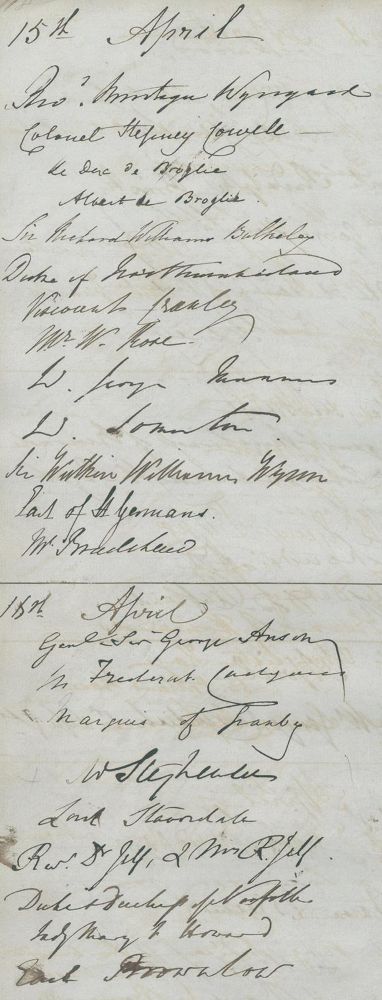 15th April
Montagu Wynyard
Colonel Stepney Cowell —
le Duc de Broglie
Albert de Broglie.
Sir Richard Williams Bulkeley
Duke of Northumberland
Viscount Cranley
Mr. W. Rose.
Ld. George Manners
Ld. Somerton
Sir Watkin Williams Wynn
Earl of St Germans.
Mr. Bradshaw
April
Genl Sir George Anson
Frederick
Marquis of Granby
Stephenson
Lord Stavordale
Revd. Dr Jelf, & Mrs R. Jelf.
Duke & Duchess of Norfolk
Lady Mary F Howard
Earl Brownlow